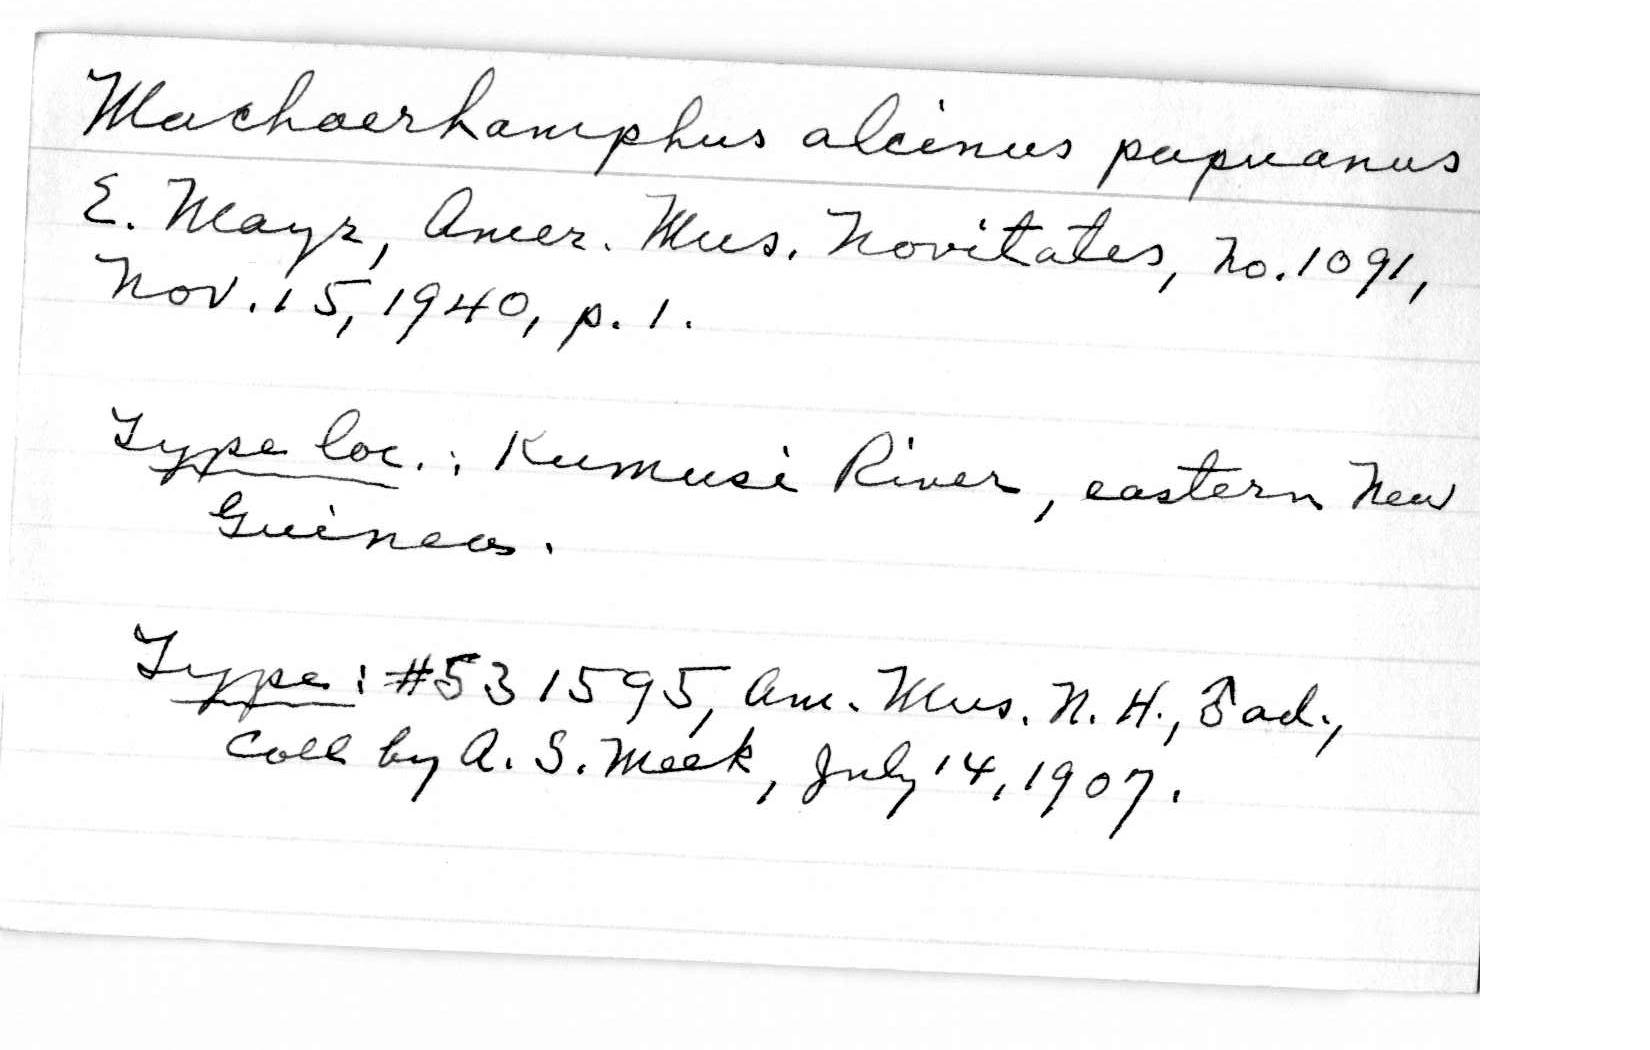 Machaerhamphus alcinus papuanus
E. Mayr, Amer. Mus. Novitates, No. 1091,
Nov. 15, 1940, p. 1.
Type loc.: Kumusi River, eastern New
Guinea.
Type: #531595, Am. Mus. N. H., ♂ ad.,
Coll by A. S. Meek, July 14, 1907.